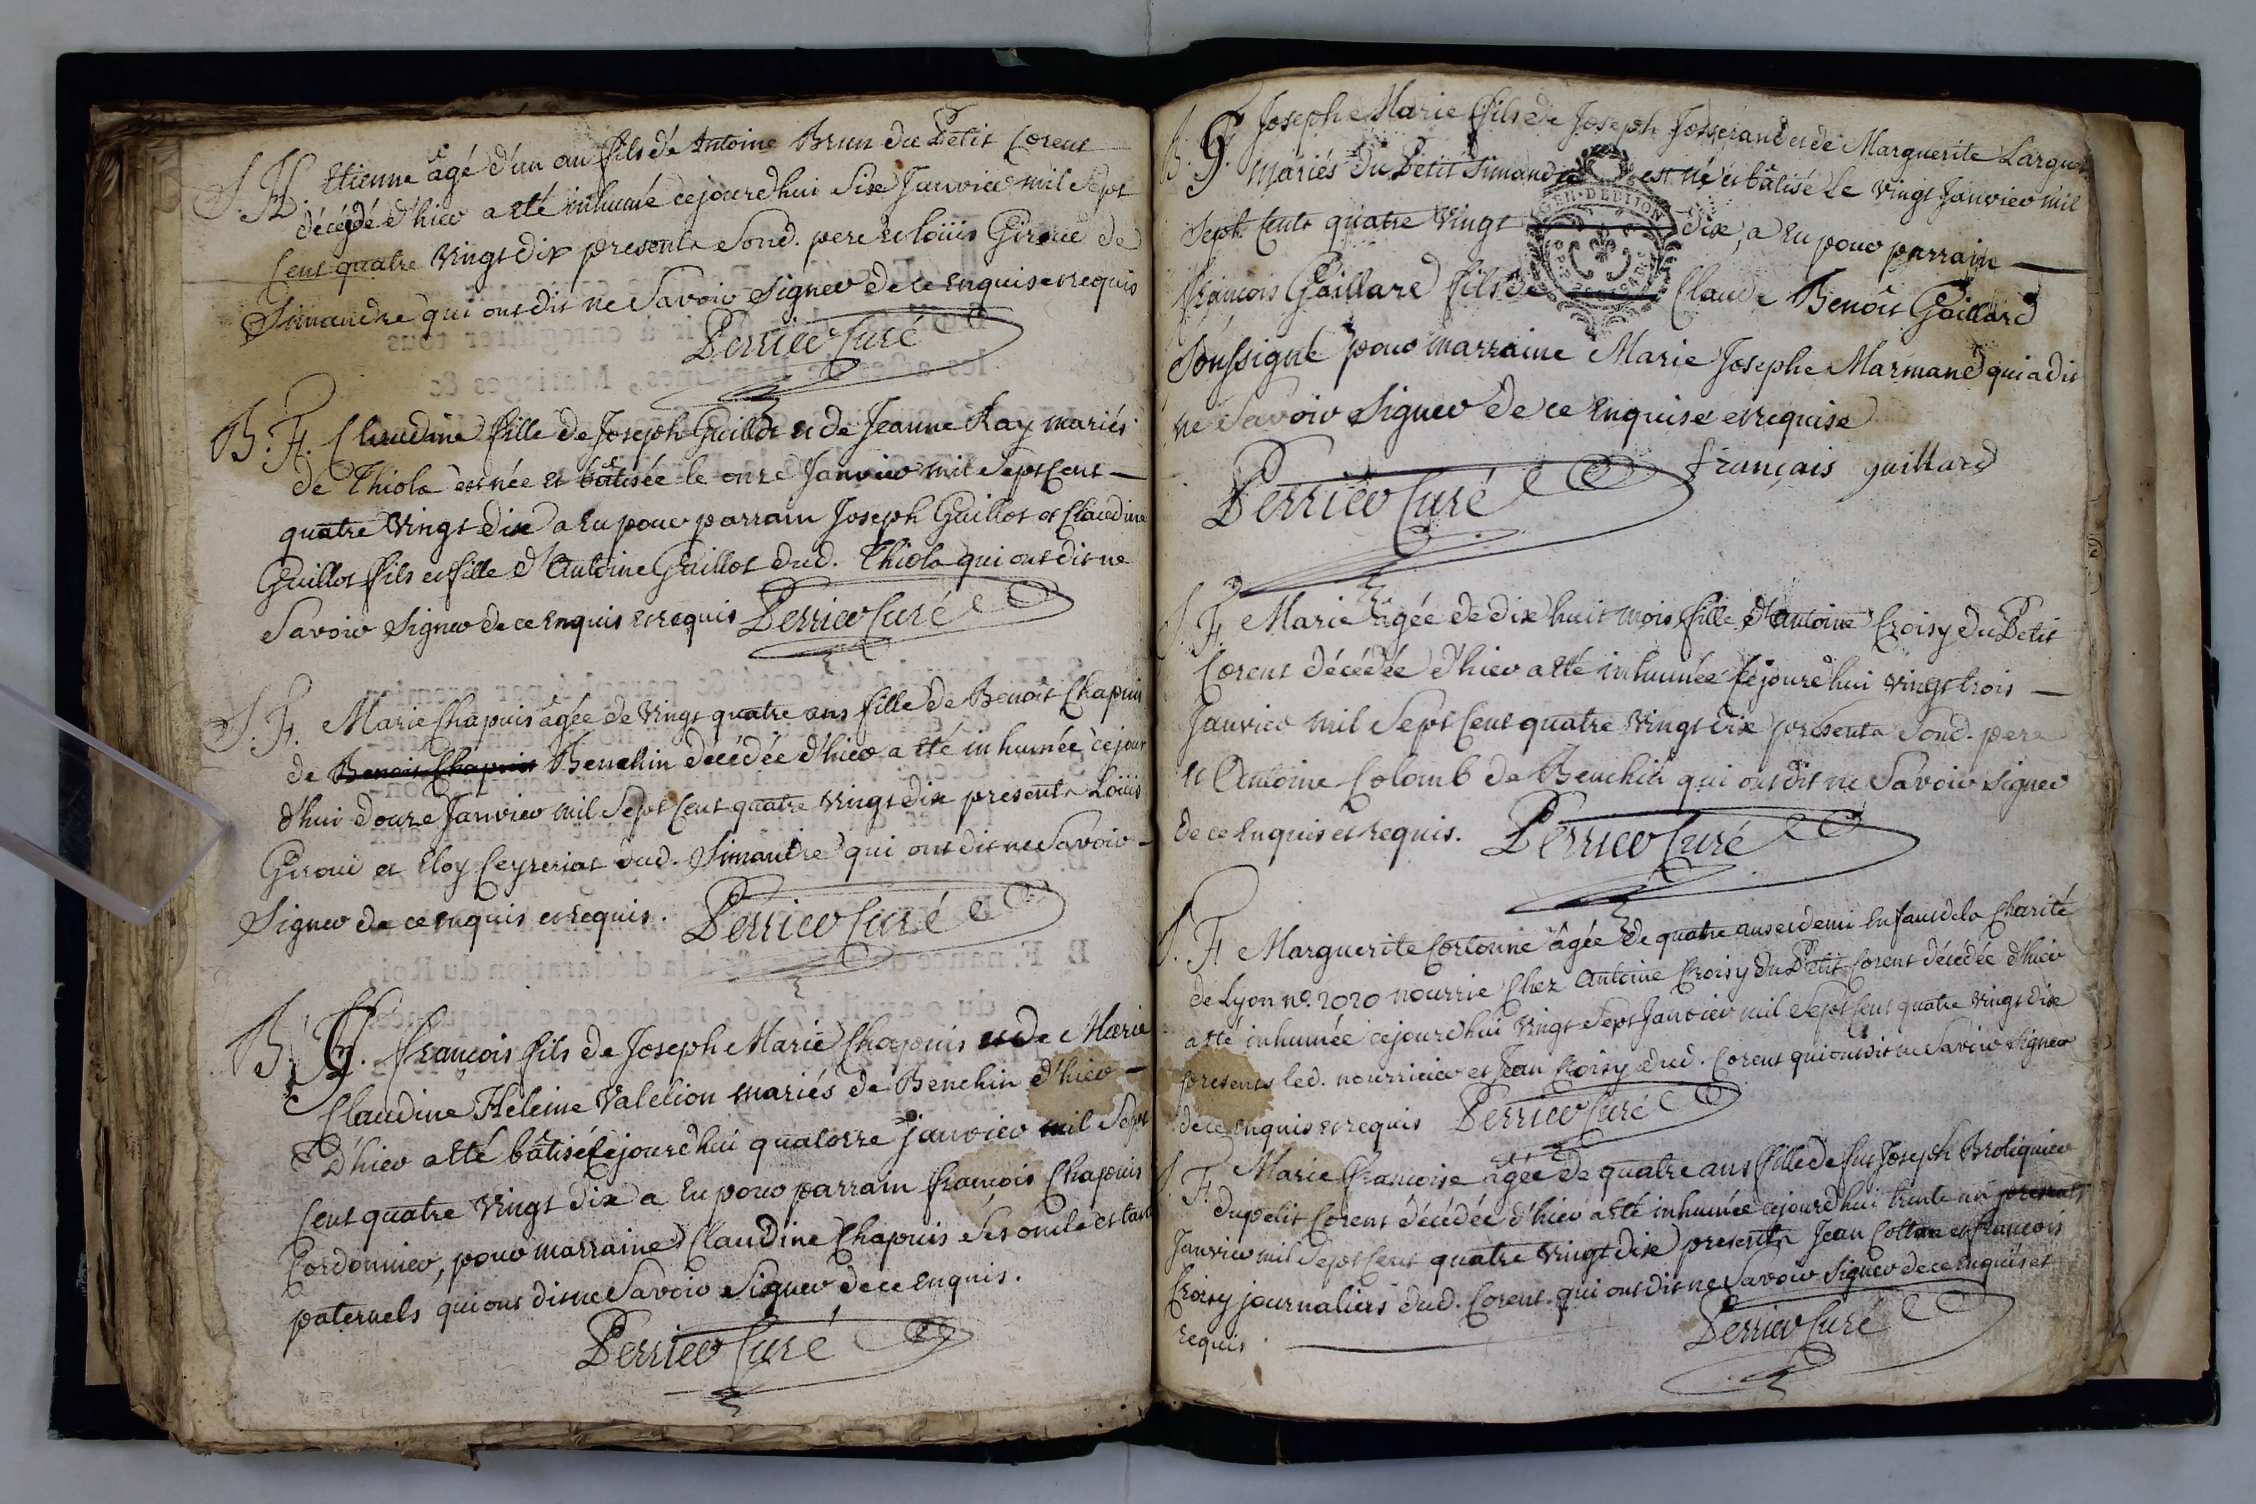 S. H. Etienne âgé d'un an fils de Antoine Brun du Petit Corent
décédé d'hier a été inhumé cejourdhui Six Janvier mil Sept
Cent quatre Vingt dix presents Sond. pere et Loüis Giroud de
Simandre qui ont dit ne Savoir Signer de ce enquis et requis
Perrier Curé
B. F. Claudine fille de Joseph Guillot et de Jeanne Ray mariés
de Thiola est née et bâtisée le onze Janvier mil Sept Cent
quatre Vingt dix a Eu pour parrain Joseph Guillot et Claudine
Guillot fils et fille d'Antoine Guillot dud. Thiola qui ont dit ne
Savoir Signer de ce enquis et requis Perrier Curé
S. F. Marie Chapuis âgée de Vingt quatre ans fille de Benoît Chapuis
de Benoit Chapuis Benchin décédée d'hier a été inhumée cejour
d'hui douze Janvier mil Sept Cent quatre Vingt dix presents Loüis
Giroud et Eloy Ceyzeriat dud. Simandre qui ont dit ne Savoir
Signer de ce enquis et requis. Perrier Curé
B. G. François fils de Joseph Marie Chapuis et de Marie
Claudine Heleine Valelion mariés de Benchin d'hier
D'hier a été bâtisé cejourdhui quatorze janvier mil Sept
Cent quatre Vingt dix a Eu pour parrain françois Chapuis
Cordonnier, pour marraine Claudine Chapuis Ses oncle et tante
paternels qui ont dit ne Savoir Signer de ce enquis.
Perrier Curé
B. G. Joseph Marie fils de Joseph Josserand et de Marguerite Largue
mariés du Petit Simandre est né et bâtisé le Vingt Janvier mil
Sept Cents quatre Vingt dix, a Eu pour parrain
françois Gaillard fils de Claude Benoît Gaillard
Soussigné pour marraine Marie Josephe Marmand qui a dit
ne Savoir Signer de ce Enquise et requise
françois gaillard
Perrier Curé
S. F. Marie agée de dix huit mois fille d'Antoine Croisy du Petit
Corent décédée d'hier a été inhumée Cejourd'hui Vingt trois
Janvier mil Sept Cent quatre Vingt dix presents Sond. pere
et Antoine Colomb de Benchin qui ont dit ne Savoir Signer
de ce Enquis et requis. Perrier Curé
S. F. Marguerite Cortonne âgée de quatre ans et demi Enfant de la Charité
de Lyon no. 2020 nourrie Chez Antoine Croisy du Petit Corent décédée d'hier
a été inhumée cejourd'hui Vingt Sept Janvier mil Sept Cent quatre Vingt dix
presents led. nourricier et Jean Croisy dud. Corent qui ont dit ne Savoir Signer
de ce enquis et requis Perrier Curé
S. F. Marie Françoise agée de quatre ans fille de feu Joseph Brotiquier
du petit Corent décédée d'hier a été inhumée cejourd'hui trente un presents
Janvier mil Sept Cent quatre Vingt dix presents Jean Cottan et François
Croisy journaliers dud. Corent qui ont dit ne Savoir Signer de ce enquis et
requis
Perrier Curé